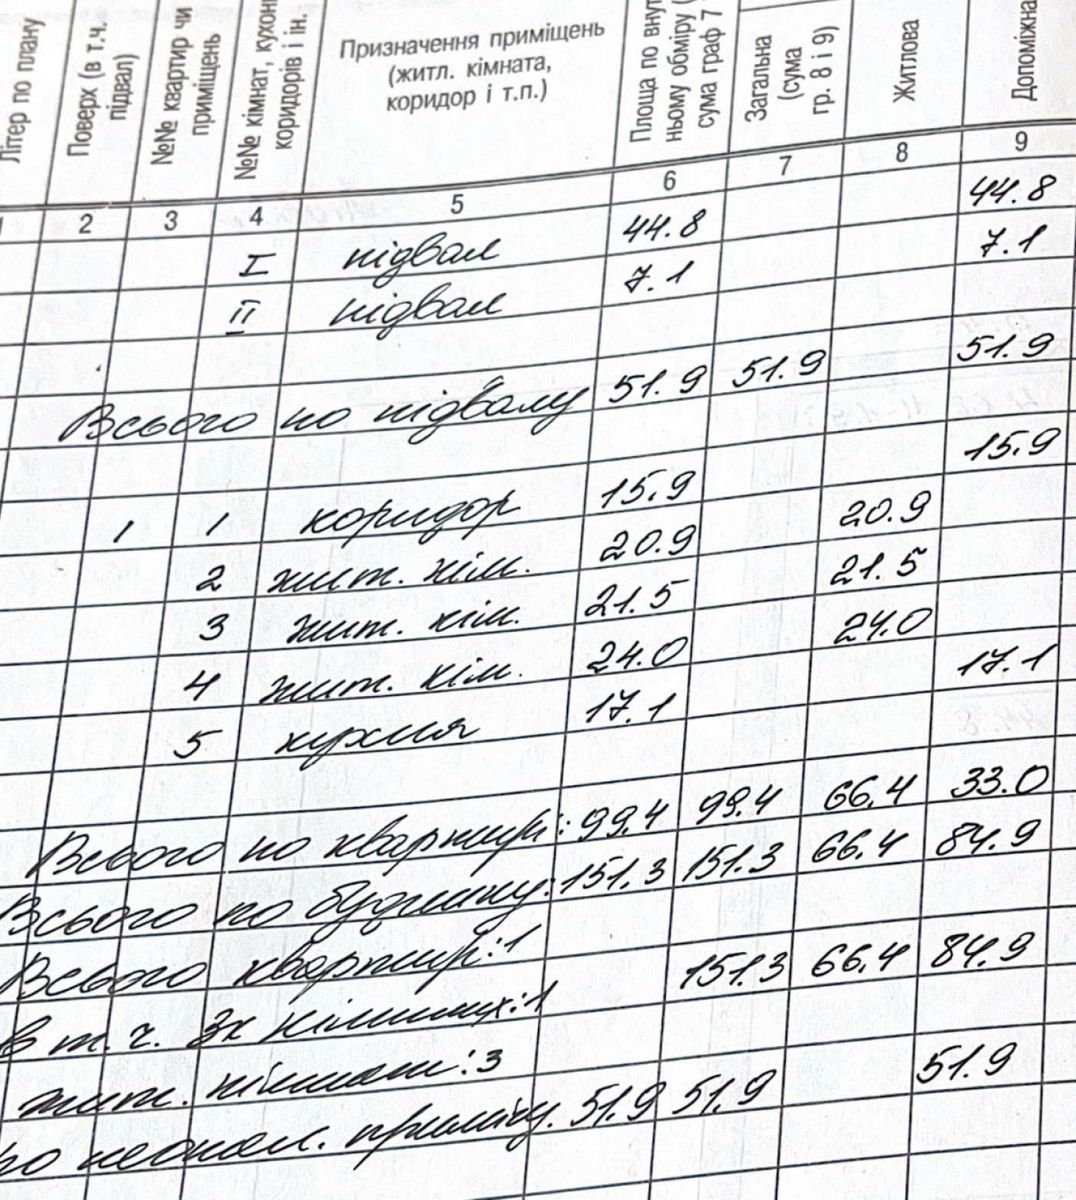 Літер по плану
Поверх (в т.ч. підвал)
№№ квартир чи приміщень
№№ кімнат, кухонь коридорів і ін.
Призначення приміщень
(житл. кімната,
коридор і т.п.)
Площа по внут
ньому обміру (
сума граф 7
Загальна
(сума
гр. 8 і 9)
Житлова
Допоміжна
1 2 3 4 5 6 7 8 9
I підвал 44.8 44.8
II підвал 7.1 7.1
Всього по підвалу 51.9 51.9 51.9
1 1 коридор 15.9 15.9
2 жит. кім. 20.9 20.9
3 жит. кім. 21.5 21.5
4 жит. кім. 24.0 24.0
5 кухня 17.1 17.1
Всього по квартирі: 99.4 99.4 66.4 33.0
Всього по будинку: 151.3 151.3 66.4 84.9
Всього квартир: 1 151.3 66.4 84.9
в т.ч. 3х кімнатних: 1
жит. кімнат: 3
по неопал. приміщ. 51.9 51.9 51.9